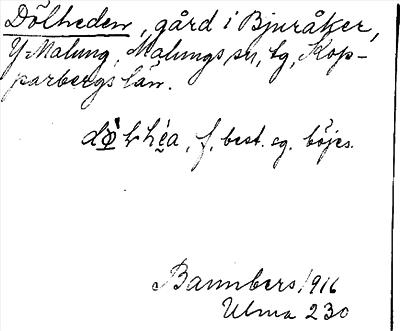 Dölheden, gård i Bjuråker,
Y-Malung, Malungs sn, tg, Kop-
parbergs län.
f, best. sg. böjes.
1916
Ulma 230